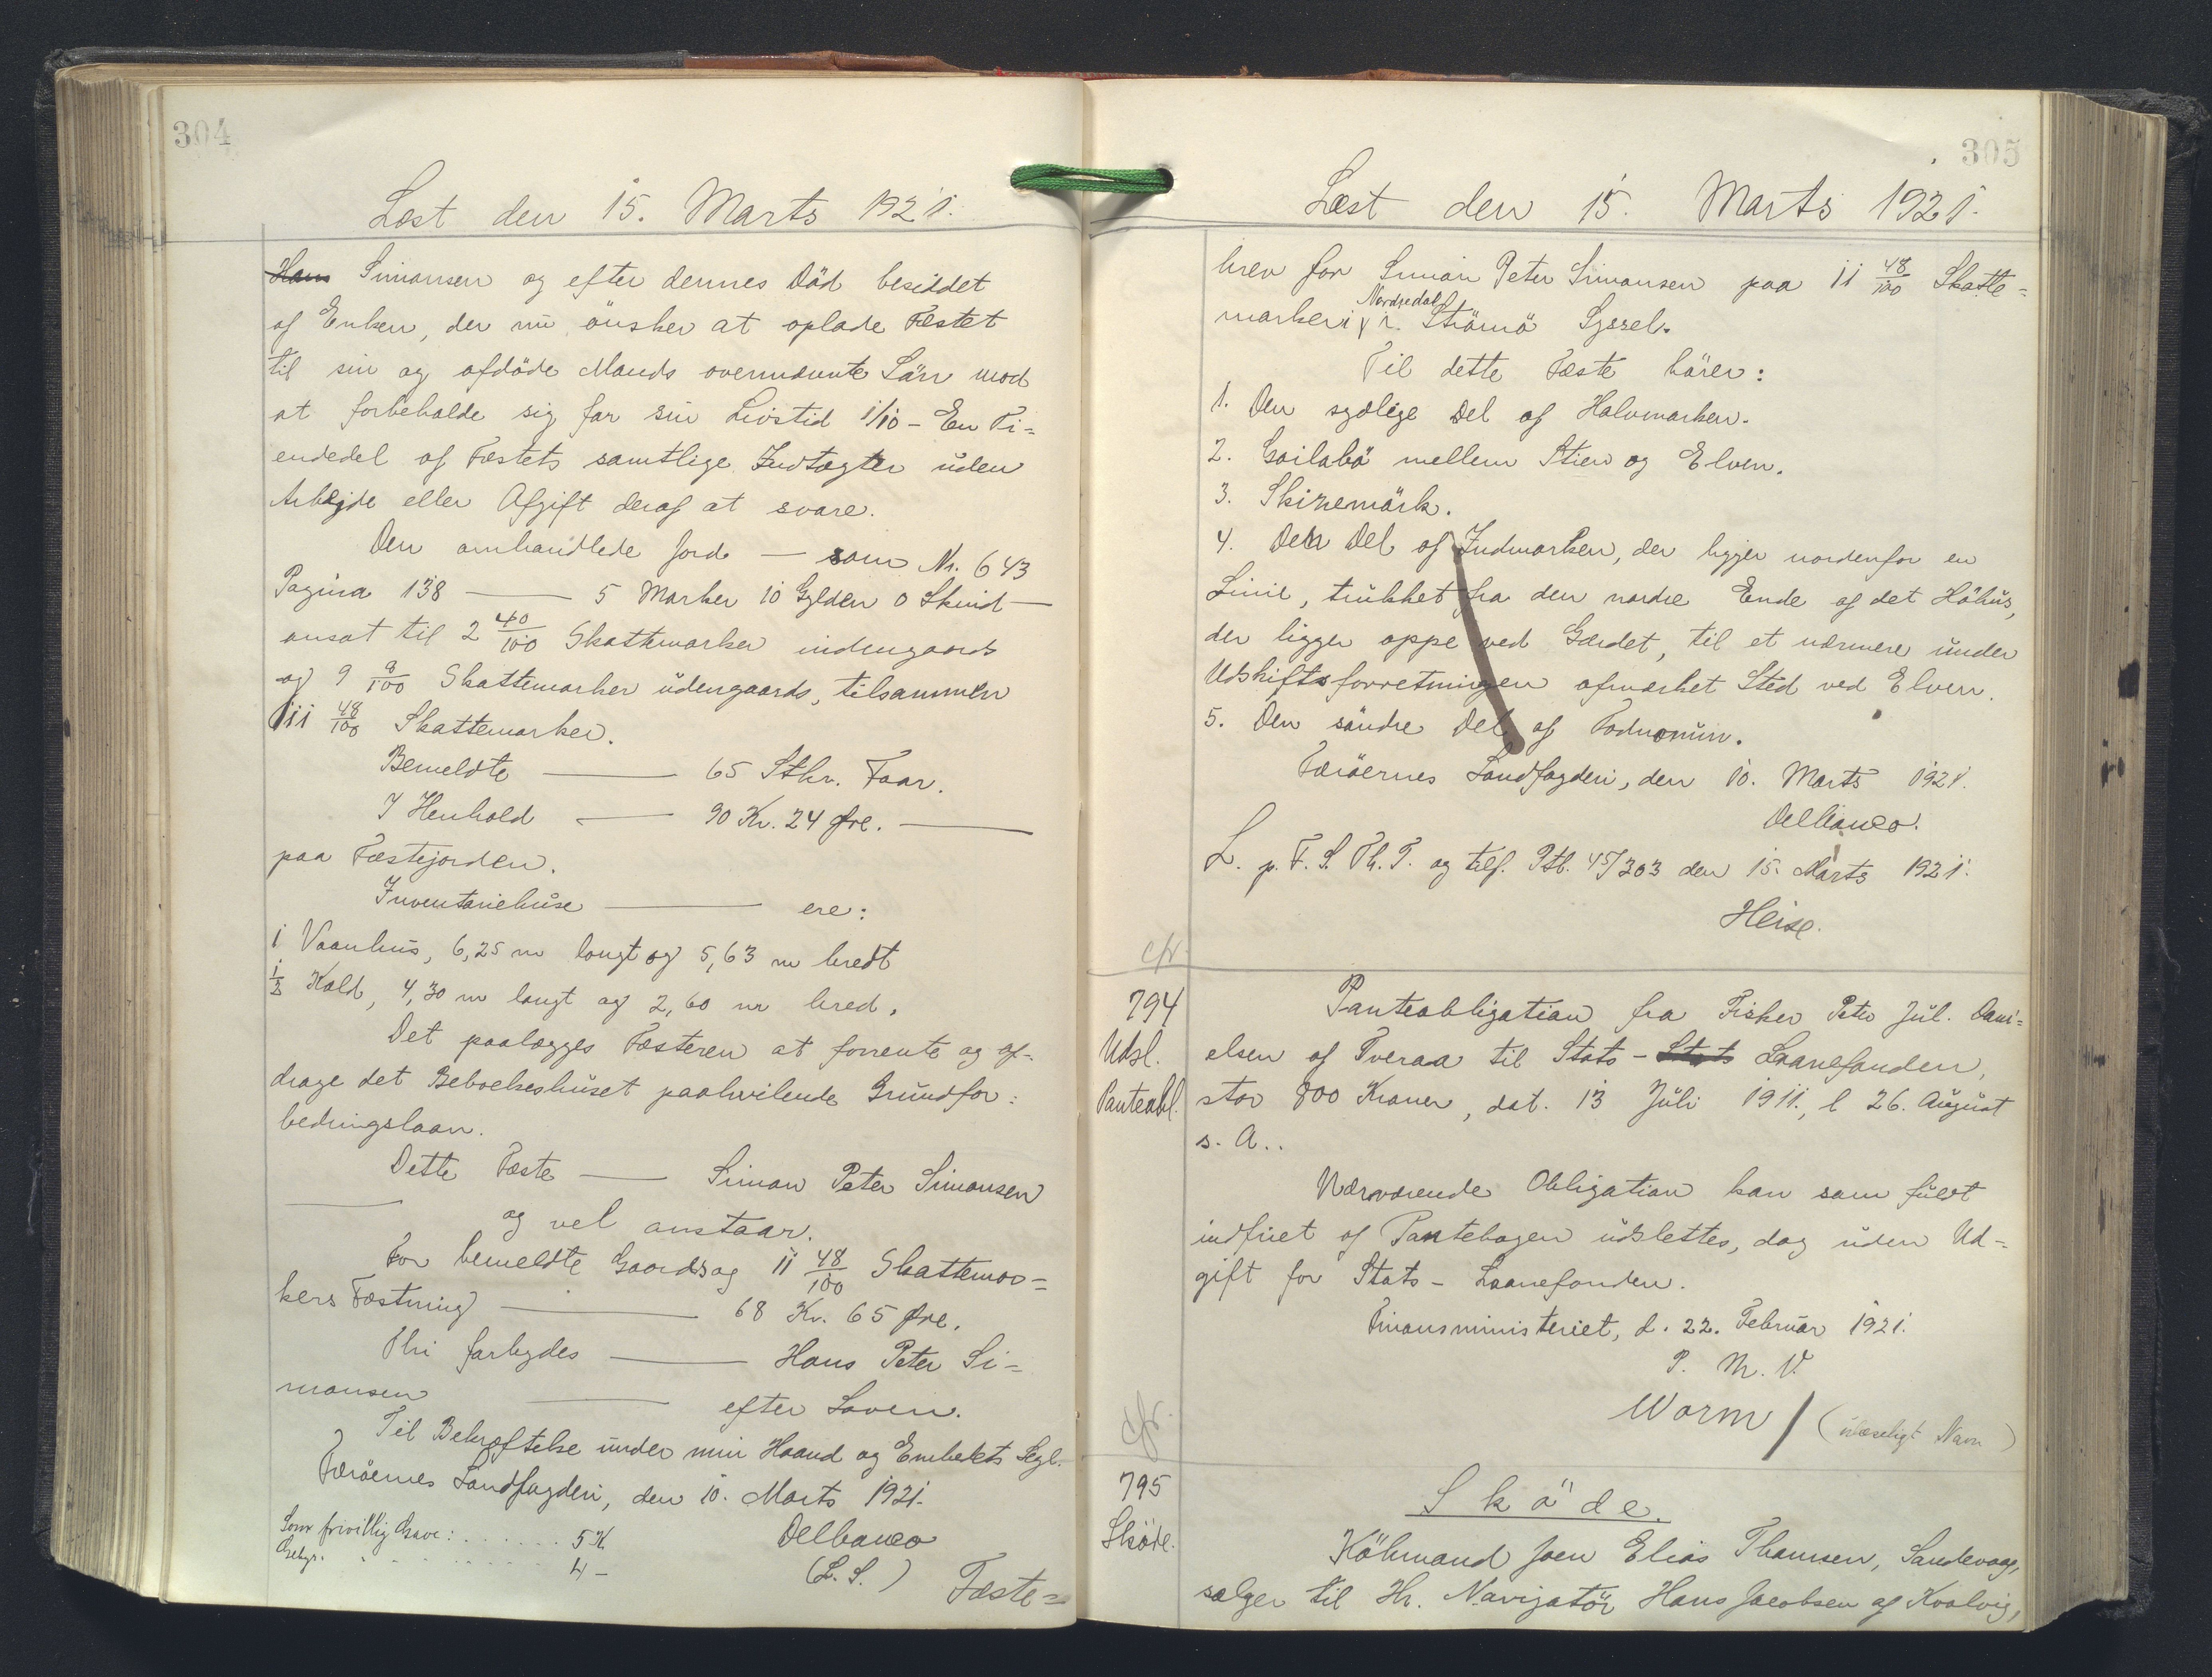 304
Læst den 15. Marts 1921.
Hans Simonsen og efter dennes Död besiddet
af Enken, der nu önsker at oplade Fæstet
til sin og afdöde Mands ovennævnte Sön mod
at forbeholde sig for sin Livstid 1/10 - En Ti=
endedel af Fæstets samtlige Indtægter uden
Arbejde eller Afgift deraf at svare.
Den omhandlede Jord — som Nr. 643
Pagina 138 — 5 Marker 10 Gylden 0 Skind —
ansat til 2 40/100 Skattemarker indengaards
og 9 8/100 Skattemarker udengaards, tilsammen
11 48/100 Skattemarker.
Bemeldte — 65 Stkr. Faar.
I Henhold — 90 Kr. 24 Øre. —
paa Fæstejorden.
Inventariehuse — ere:
1 Vaanhus, 6,25 m langt og 5,63 m bredt
1/2 Hald, 4,30 m langt og 2,60 m bred.
Det paalægges Fæsteren at forrente og af-
drage det Beboelseshuset paahvilende Grundfor=
bedringslaan.
Dette Fæste — Simon Peter Simonsen
— og vel anstaar.
For bemeldte Gaards og 11 48/100 Skattemar=
kers Fæstning — 68 Kr. 65 Øre.
Thi forbydes — Hans Peter Si=
monsen — efter Loven.
Til Bekræftelse under min Haand og Embedets Segl.
Færöernes Landfogderi, den 10. Marts 1921.
Som frivillig Gave: . . . . . . 5 K
Delbanco
Gebyr. . . . . . . . 4 -
(L. S.)
Fæste=
305
Læst den 15. Marts 1921.
brev for Simon Peter Simonsen paa 11 48/100 Skatte=
Nordredal
marker i r. Strömö Syssel.
Til dette Fæste hörer:
1. Den sydlige Del af Halvmarken.
2. Goilabö mellem Stien og Elven.
3. Skinemörk.
4. Den Del af Indmarken, der ligger nordenfor en
Linie, trukket fra den nordre Ende af det Höhus,
der ligger oppe ved Gærdet, til et nærmere under
Udskiftsforretningen afmærket Sted ved Elven.
5. Den söndre Del af
Færöernes Landfogderi, den 10. Marts 1921.
Delbanco.
L. p. F. S. Th. T. og tilf. Ptb. 45/303 den 15. Marts 1921.
Heise.
cfr.
794
Udsl.
Panteobl.
Panteobligation fra Fisker Peter Jul. Dani=
elsen af Tveraa til Stats - Stats Laanefonden,
stor 800 Kroner, dat. 13 Juli 1911, l 26. August
s. A..
Nærværende Obligation kan som fuldt
indfriet af Pantebogen udslettes, dog uden Ud-
gift for Stats - Laanefonden.
Finansministeriet, d. 22. Februar 1921.
P. M. V.
Worm / (ulæseligt Navn)
cfr.
795
Sköde.
Sköde.
Köbmand Joen Elias Thomsen, Sandevaag,
sælger til Hr. Navigatör Hans Jacobsen af Kvalvig,